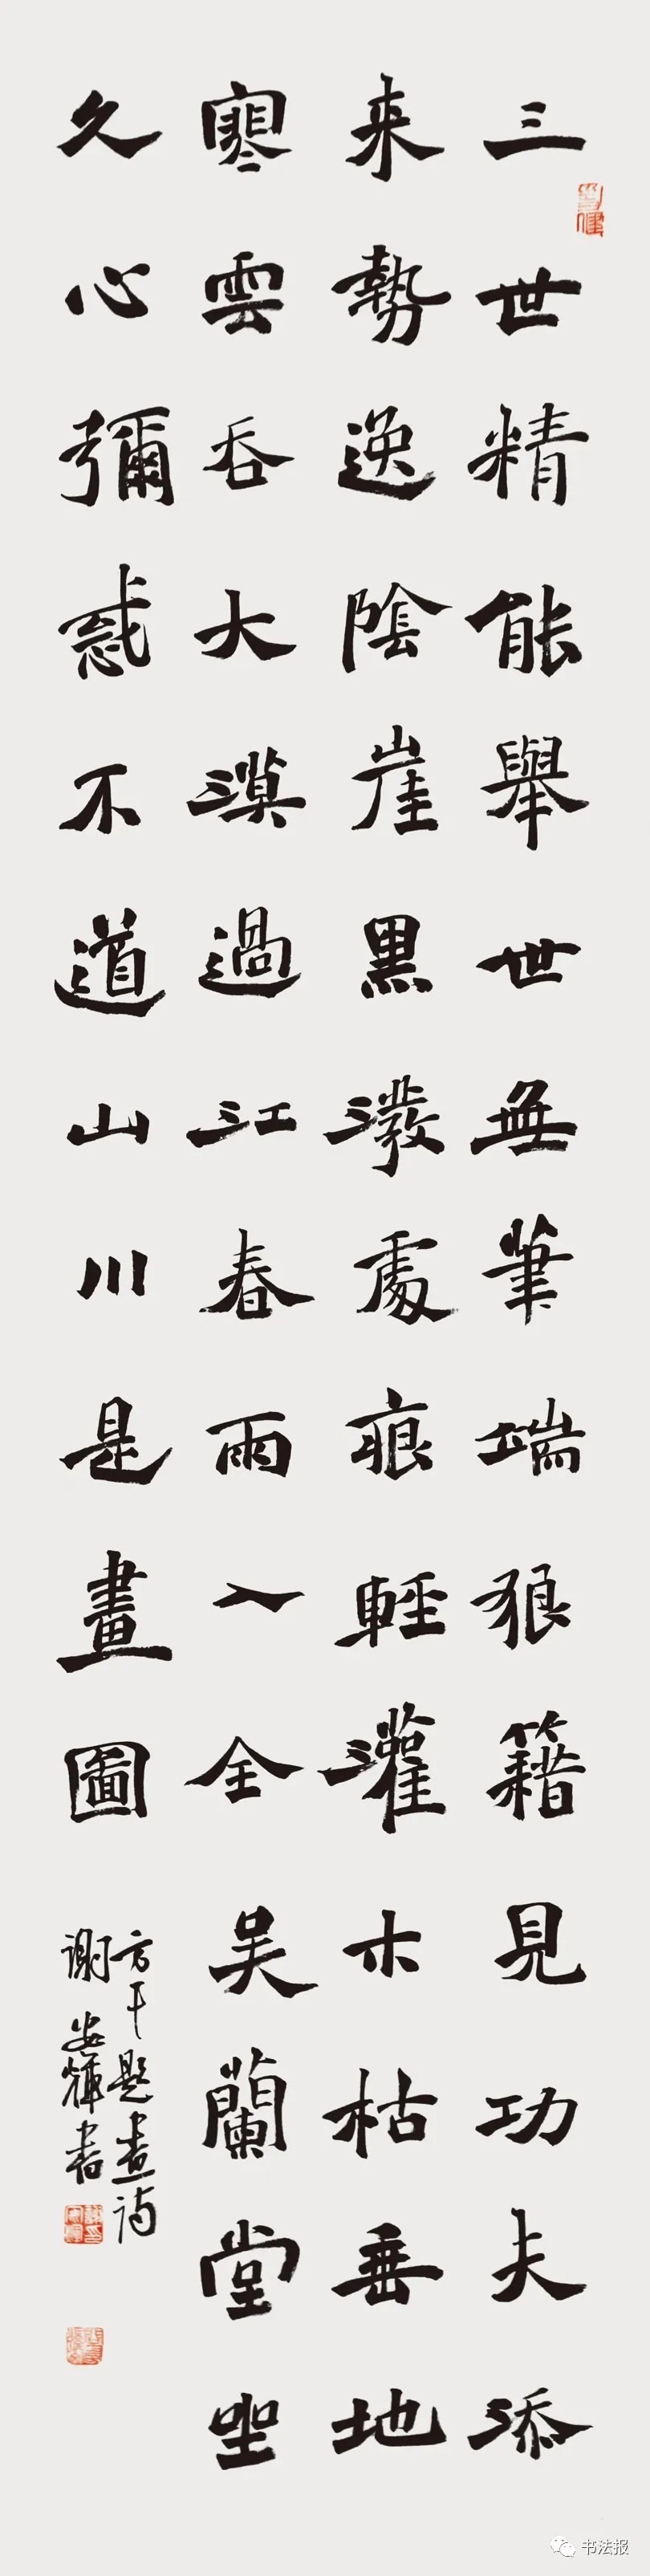 三世精能舉世無筆端狼籍見功夫添
来勢逸陰崖黑潑處痕輕灌木枯垂地
寒雲吞大漠過江春雨入全吴蘭堂坐
久心彌惑不道山川是畫圖
方干題畫詩
谢安輝書
书法报